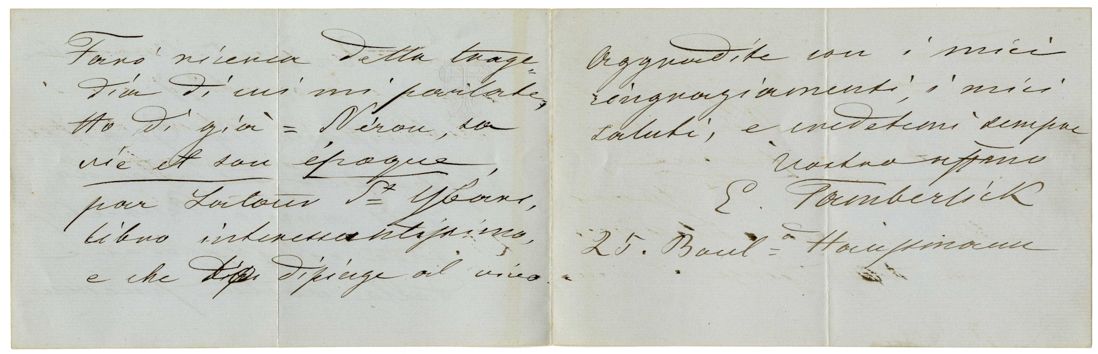 Farò ricerca della trage=
dia di cui mi parlate,
Ho di già = Néron, sa
vie et son époque
par Latour St Ybars,
libro interessantissimo,
e che dipinge al vivo.
Aggradite con i miei
ringraziamenti, i miei
saluti, e credetemi sempre
vostro affmo
E. Tamberlick
25. Boul=d Haussmann